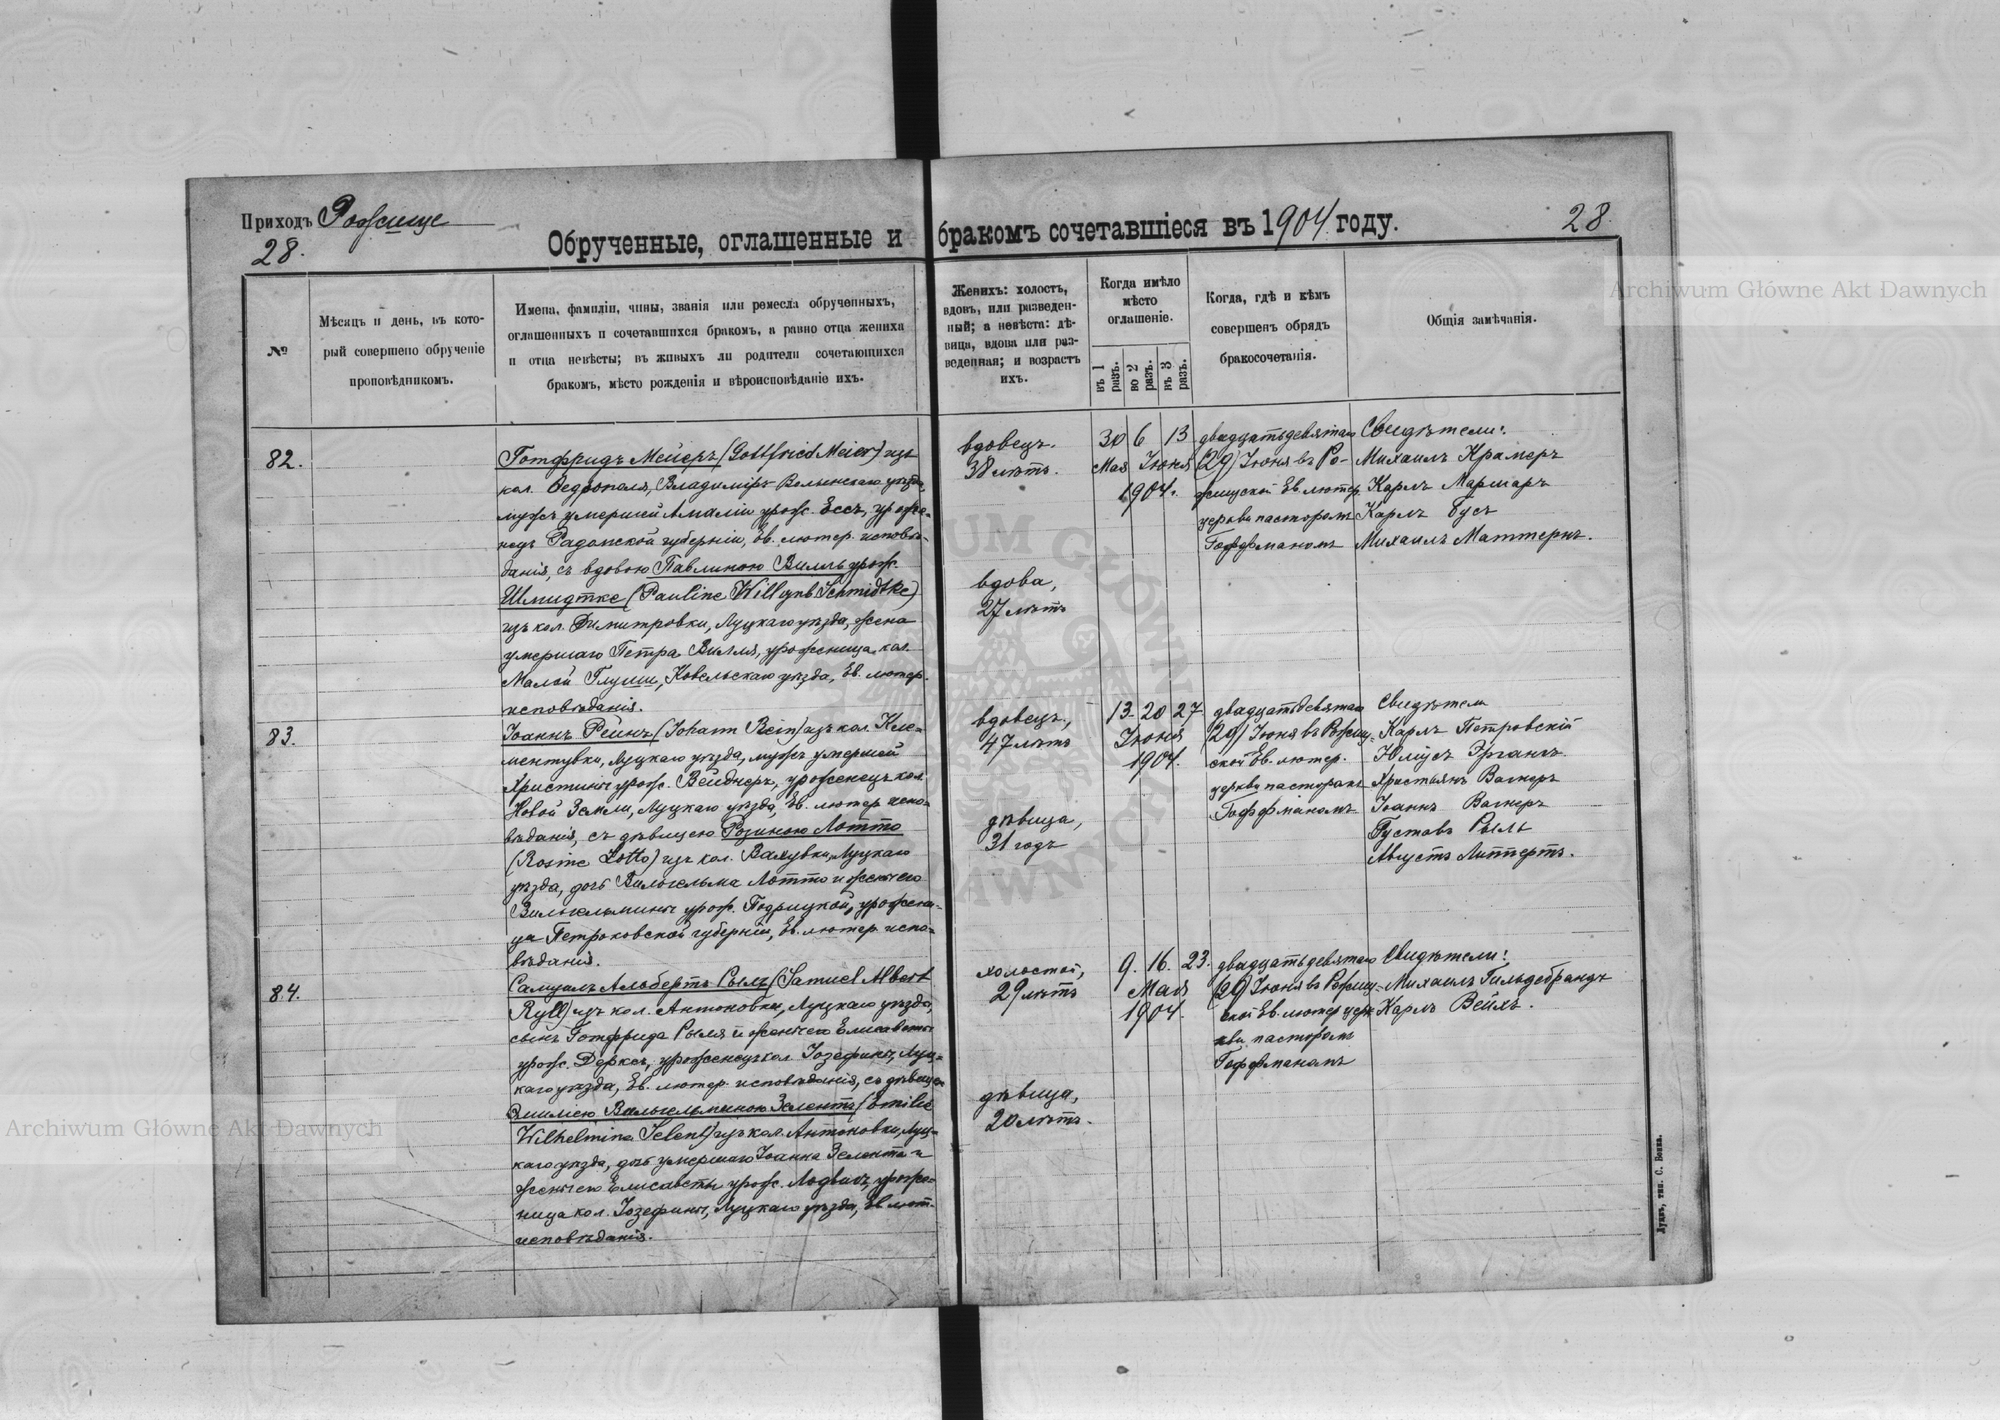 Приходъ Рожище
28.
28.
Обрученные, оглашенные и бракомъ сочетавшіеся въ 1904 году.
№
Мѣсяцъ и день, въ кото-
рый совершено обрученіе
проповѣдникомъ.
Имена, фамиліи, чины, званія или ремесла обрученныхъ,
оглашенныхъ и сочетавшихся бракомъ, а равно отца жениха
и отца невѣсты; въ живыхъ ли родители сочетающихся
бракомъ, мѣсто рожденія и вѣроисповѣданіе ихъ.
Женихъ: холостъ,
вдовъ, или разведен-
ный; а невѣста: дѣ-
вица, вдова или раз-
веденная; и возрастъ
ихъ.
Когда имѣло
мѣсто
оглашеніе.
въ 1 разъ.
во 2 разъ.
въ 3 разъ.
Когда, гдѣ и кѣмъ
совершенъ обрядъ
бракосочетанія.
Общія замѣчанія.
82.
Готфридъ Мейеръ (Gottfried Meier) изъ
кол. Ѳедрополя, Владиміръ Волынскаго уѣзда,
мужъ умершей Амаліи урож. Бессъ, уроже-
нецъ Радомской губерніи, Ев. лютер. исповѣ-
данія, съ вдовою Павлиною Вилль урож.
Шмидтке (Pauline Will geb Schmidtke)
изъ кол. Димитровки, Луцкаго уѣзда, жена
умершаго Петра Вилля, уроженица кол.
Малой Глуши, Ковельскаго уѣзда, Ев. лютер.
исповѣданія.
вдовецъ.
38 лѣтъ.
вдова,
27 лѣтъ
30 6 13
Мая Іюня
1904 г.
двадцатьдевятаго
(29) Іюня въ Ро-
жищской Ев. лютер.
церкви пасторомъ
Гоффманомъ
Свидѣтели:
Михаилъ Крамеръ
Карлъ Маршаръ
Карлъ Бусъ
Михаилъ Маттернъ.
83.
Іоаннъ Рейнъ (Johann Rein) изъ кол. Кле-
ментувки, Луцкаго уѣзда, мужъ умершей
Христины урож. Вейднеръ, уроженецъ кол.
Новой Земли, Луцкаго уѣзда, Ев. лютер. испо-
вѣданія, съ дѣвицею Розиною Лотто
(Rosine Lotto) изъ кол. Валувки, Луцкаго
уѣзда, дочь Вильгельма Лотто и жены его
Вильгельмины урож. Подрицкой, урожени-
ца Петроковской губерніи, Ев. лютер. испо-
вѣданія.
вдовецъ,
47 лѣтъ
дѣвица,
31 годъ
13 20 27
Іюня
1904.
двадцатьдевятаго
(29) Іюня въ Рожищ-
ской Ев. лютер.
церкви пасторомъ
Гоффманомъ
Свидѣтели
Карлъ Петровскій
Юліусъ Эрганъ.
Христьянъ Вагнеръ
Іоаннъ Вагнеръ
Густавъ Рыль
Августъ Липпертъ.
84.
Самуилъ Альбертъ Рыль (Samuel Albert
Ryll) изъ кол. Антоновки, Луцкаго уѣзда,
сынъ Готфрида Рыля и жены его Елисаветы
урож. Деркъ, уроженецъ кол. Іозефины, Луц-
каго уѣзда, Ев. лютер. исповѣданія, съ дѣвицею
Эмиліею Вильгельминою Зелентъ (Emilie
Wilhelmine Selent) изъ кол. Антоновки, Луц-
каго уѣзда, дочь умершаго Іоанна Зелента и
жены его Елисаветы урож. Лодвигъ, уроже-
ница кол. Іозефины, Луцкаго уѣзда, Ев. лют.
исповѣданія.
холостой,
29 лѣтъ
дѣвица,
20 лѣтъ.
9. 16. 23.
Мая
1904.
двадцатьдевятаго
(29) Іюня въ Рожищ-
ской Ев. лютер церк
кви пасторомъ
Гоффманомъ
Свидѣтели:
Михаилъ Гильдебрандъ
Карлъ Вейхъ.
Archiwum Główne Akt Dawnych
Archiwum Główne Akt Dawnych